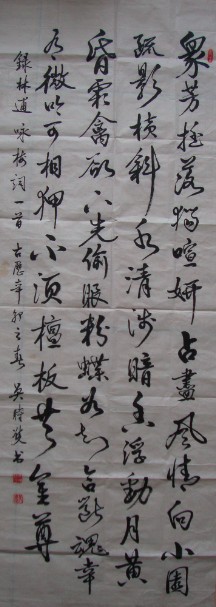 众芳摇落独喧妍占尽风情向小園
疏影横斜水清浅暗香浮動月黄
昏霜禽欲下先偷眼粉蝶如知合断魂幸
有微吟可相狎不須檀板共金尊
録林逋咏梅詞一首 古歷辛卯之春 吴 书